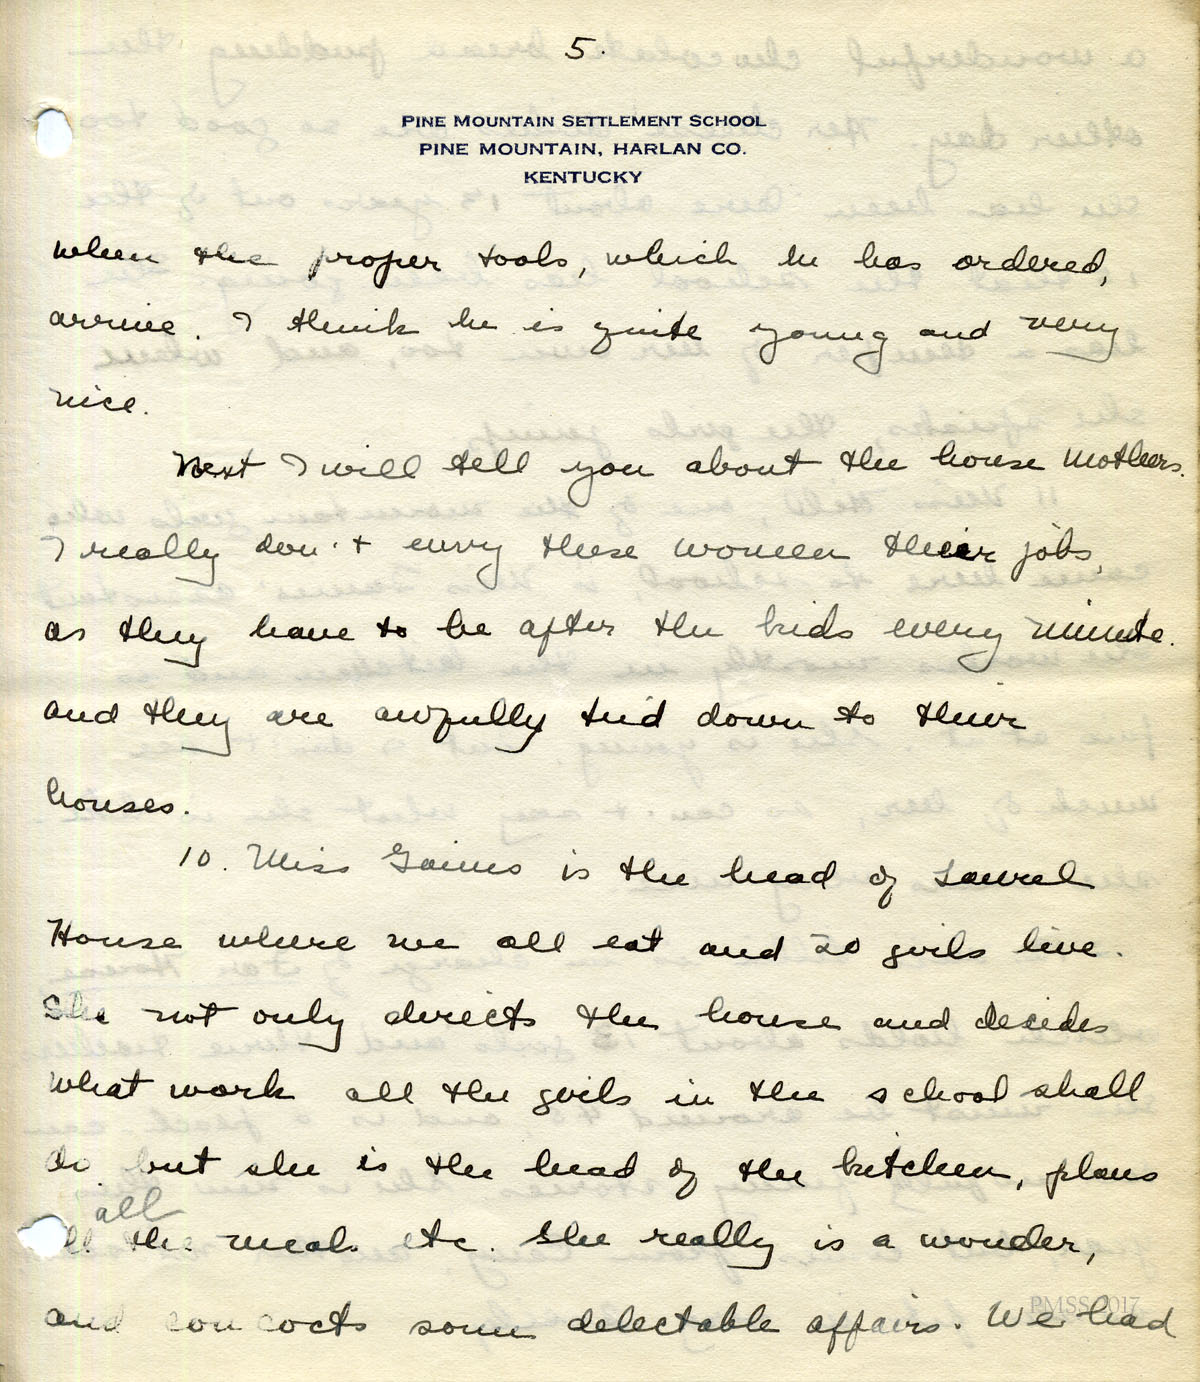 5.
PINE MOUNTAIN SETTLEMENT SCHOOL
PINE MOUNTAIN, HARLAN CO.
KENTUCKY
when the proper tools, which he has ordered,
arrive. I think he is quite young and very
nice.
Next I will tell you about the house mothers.
I really don't envy these women their jobs,
as they have to be after the kids every minute.
and they are awfully tied down to their
houses.
10. Miss Gaines is the head of Laurel
House where we all eat and 20 girls live.
She not only directs the house and decides
what work all the girls in the school shall
do but she is the head of the kitchen, plans
all
all the meals etc. She really is a wonder,
and concocts some delectable affairs. We had
PMSS 2017